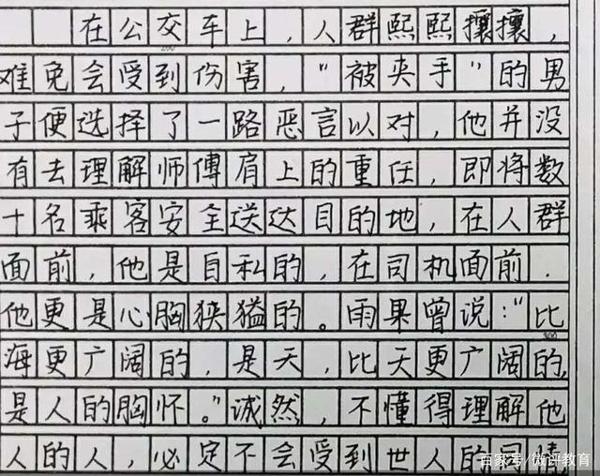 在公交车上，人群熙熙攘攘，
难免会受到伤害，“被夹手”的男
子便选择了一路恶言以对，他并没
有去理解师傅肩上的重任，即将数
十名乘客安全送达目的地，在人群
面前，他是自私的，在司机面前．
他更是心胸狭隘的。雨果曾说：“比
海更广阔的，是天，比天更广阔的，
是人的胸怀。”诚然，不懂得理解他
人的人，必定不会受到世人的同情
百家号/微评教育